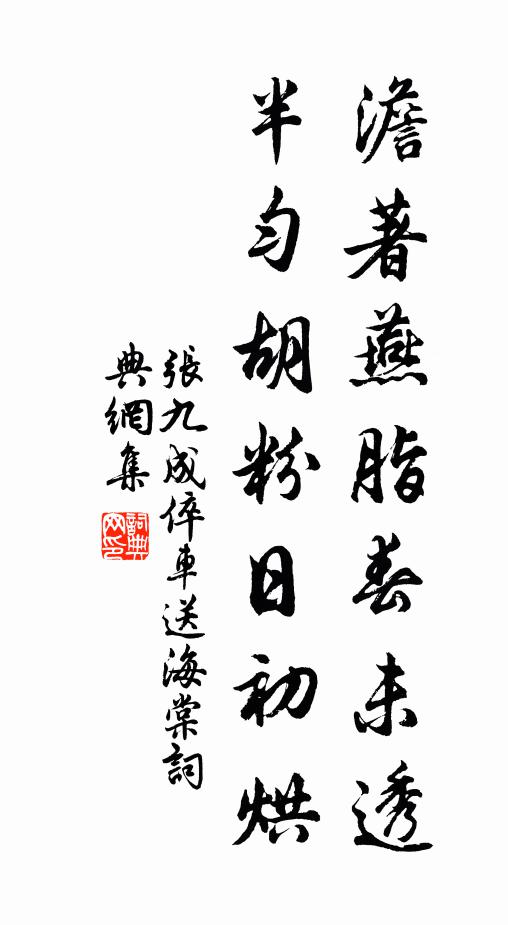 澹著燕脂春未透
半勻胡粉日初烘
張九成倅車送海棠詞
典網集
詞典網印